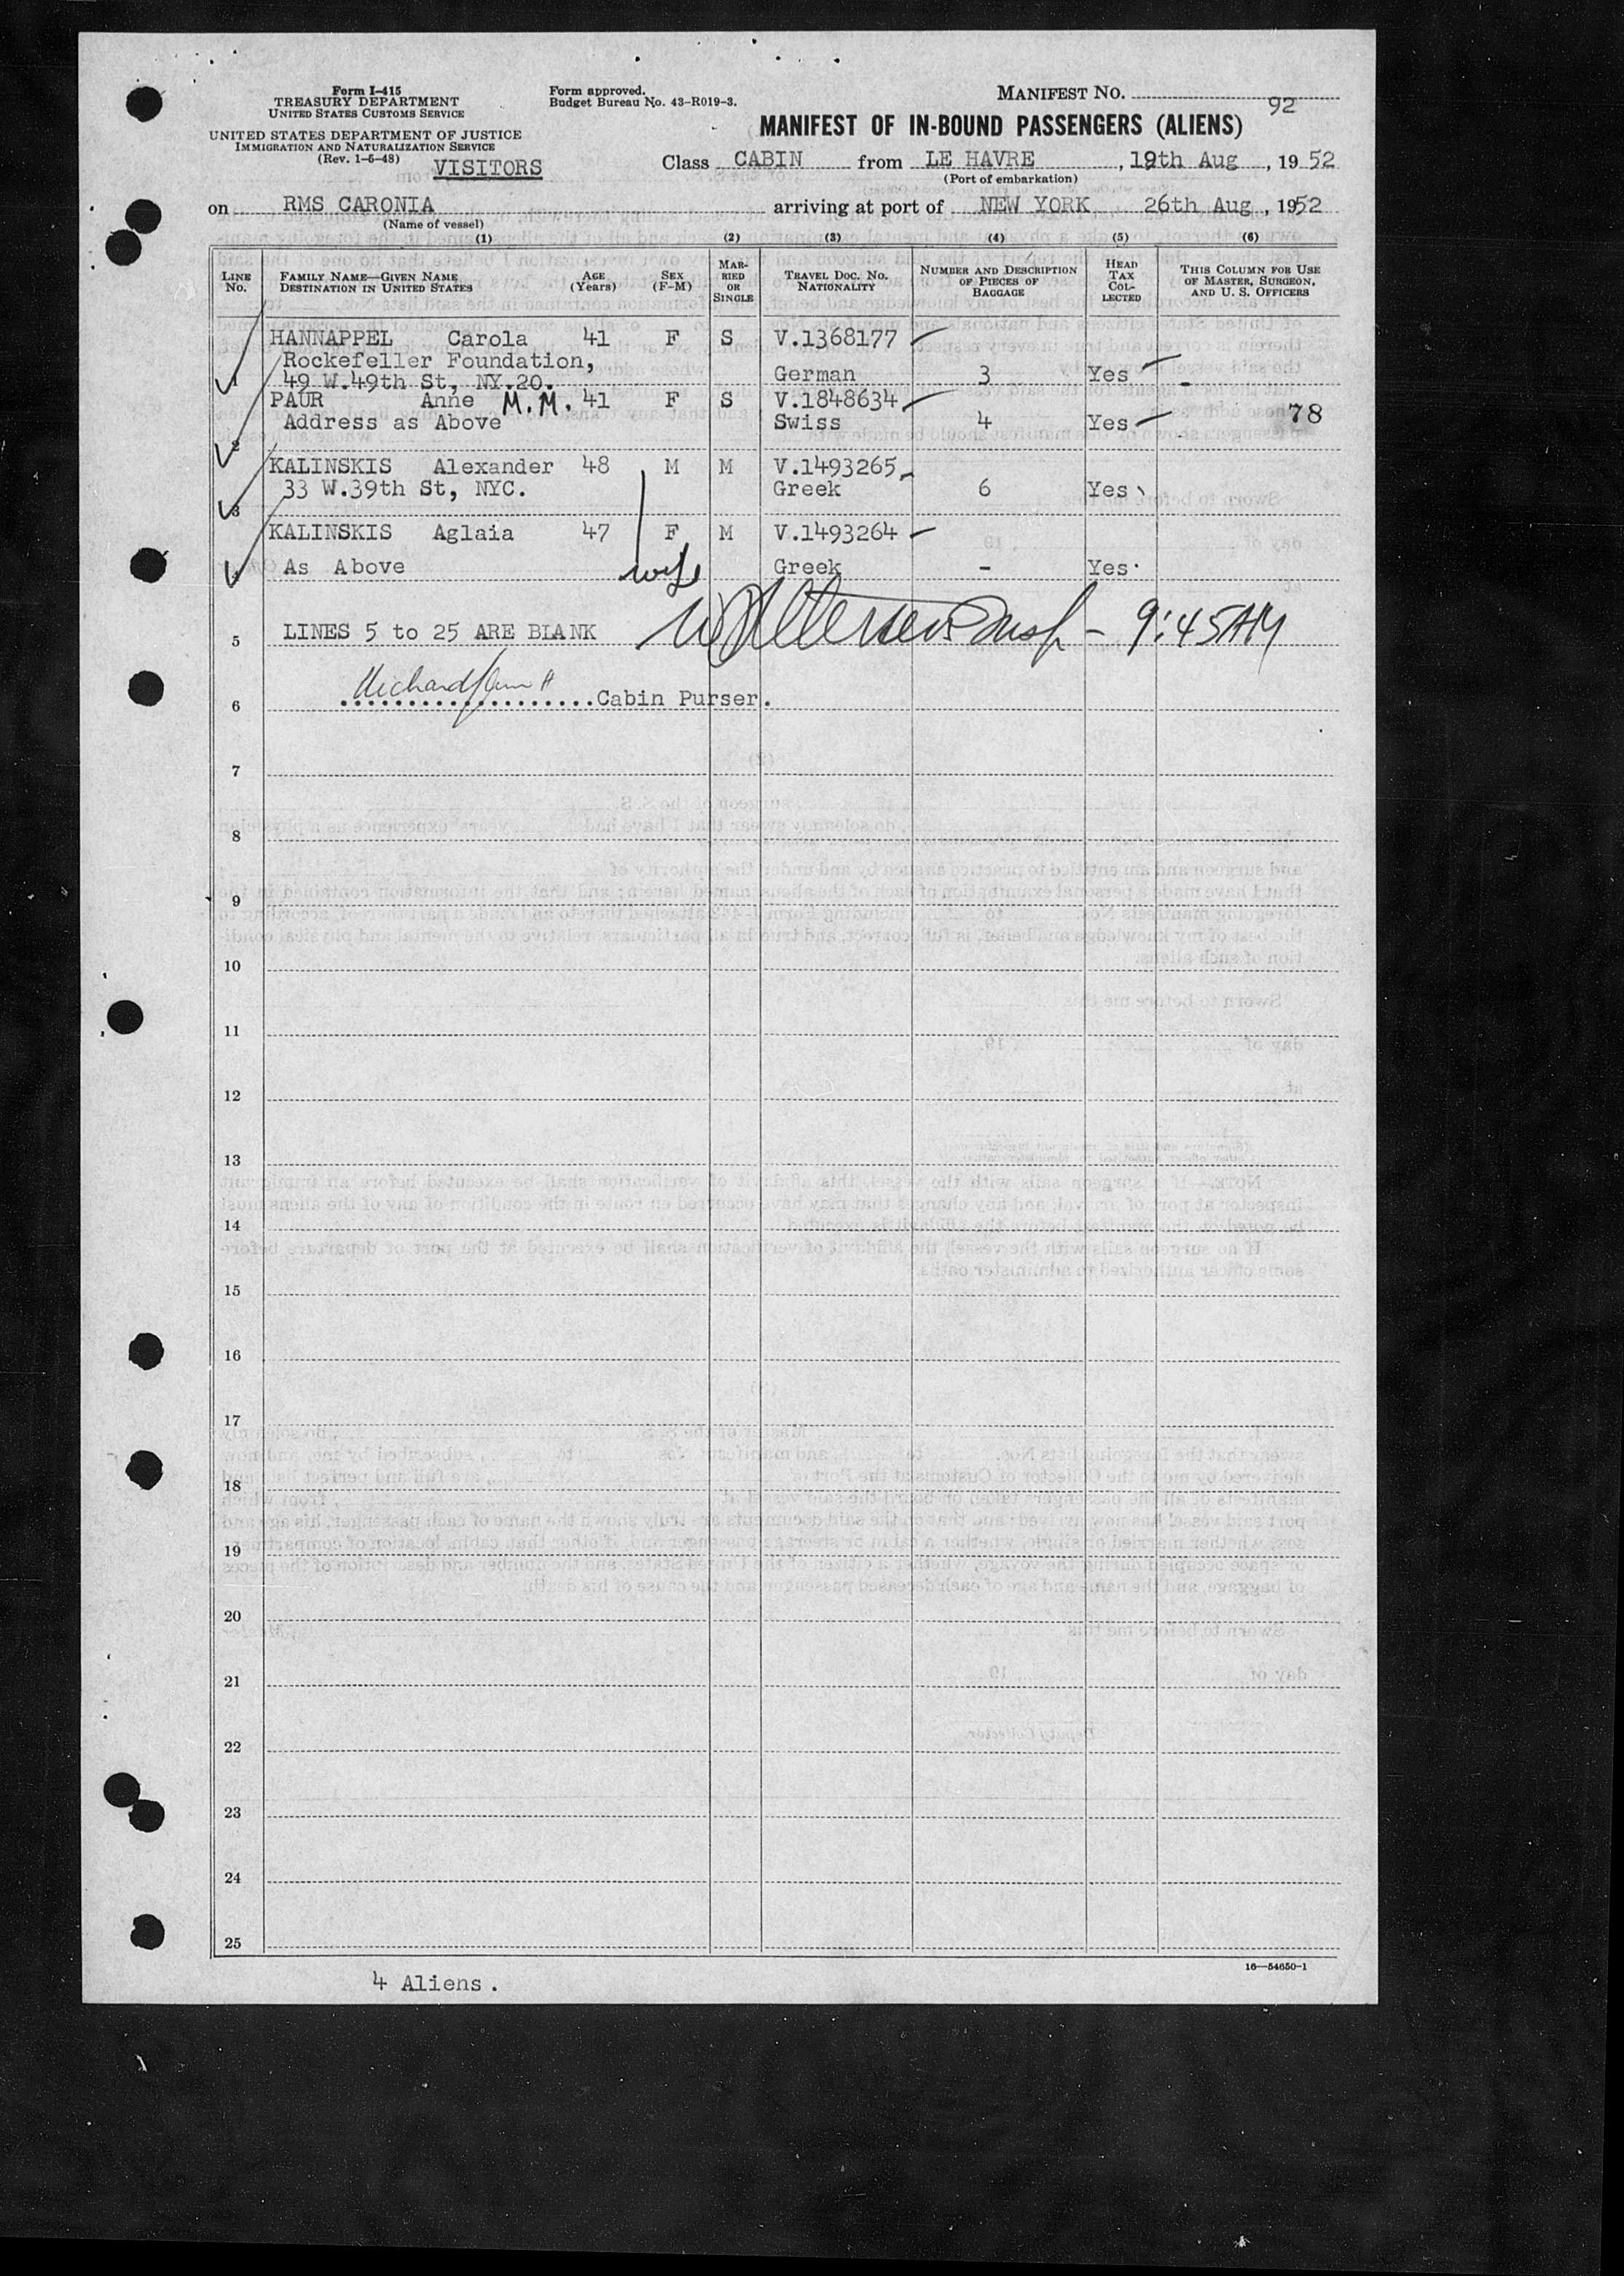 Form I-415
TREASURY DEPARTMENT
UNITED STATES CUSTOMS SERVICE
UNITED STATES DEPARTMENT OF JUSTICE
IMMIGRATION AND NATURALIZATION SERVICE
(Rev. 1-6-48)
VISITORS
Form approved.
Budget Bureau No. 43-R019-3.
MANIFEST NO.
92
MANIFEST OF IN-BOUND PASSENGERS (ALIENS)
Class CABIN from LE HAVRE, 19th Aug, 1952
(Port of embarkation)
on RMS CARONIA arriving at port of NEW YORK 26th Aug, 1952
(Name of vessel)
(1) (2) (3) (4) (5) (6)
LINE NO. FAMILY NAME—GIVEN NAME DESTINATION IN UNITED STATES AGE (Years) SEX (F-M) MARRIED OR SINGLE TRAVEL DOC. NO. NATIONALITY NUMBER AND DESCRIPTION OF PIECES OF BAGGAGE HEAD TAX COLLECTED THIS COLUMN FOR USE OF MASTER, SURGEON, AND U. S. OFFICERS
HANNAPPEL Carola 41 F S V.1368177
Rockefeller Foundation,
1 49 W.49th St, NY.20. German 3 Yes
PAUR Anne M.M. 41 F S V.1848634
Address as Above Swiss 4 Yes 78
2
KALINSKIS Alexander 48 M M V.1493265
33 W.39th St, NYC. Greek 6 Yes
3
KALINSKIS Aglaia 47 F M V.1493264
4 As Above wife Greek - Yes
5 LINES 5 to 25 ARE BLANK Insp - 9:45AM
6 Cabin Purser.
7
8
9
10
11
12
13
14
15
16
17
18
19
20
21
22
23
24
25
16—54650-1
4 Aliens.